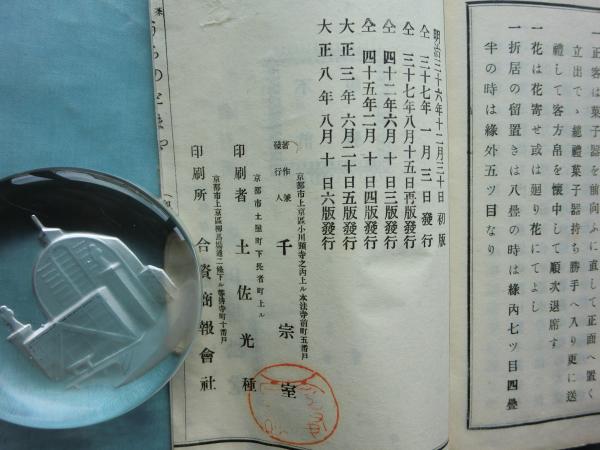 一正客は菓子器を前向ふに直して正面へ置く
立出でゝ總禮菓子器持ち勝手へ入り更に送
禮して客方帛を懷中して順次退席す
一花は花寄せ或は廻り花にてよし
一折居の留置きは八疊の時は緣內七ツ目四疊
半の時は緣外五ツ目なり
明治三十六年十二月三十日初版
仝 三十七年一月三日發行
仝 三十七年八月十五日再版發行
仝 四十二年六月十日三版發行
仝 四十五年二月十日四版發行
大正三年六月二十日五版發行
大正八年八月十日六版發行
京都市上京區小川頭寺之內上ル本法寺前町五番戶
著作兼
發行人 千宗室
京都市土屋町下長者町上ル
印刷者 土佐光種
京都市上京區柳馬場通二條下ル等持寺町十番戶
印刷所 合資商報會社